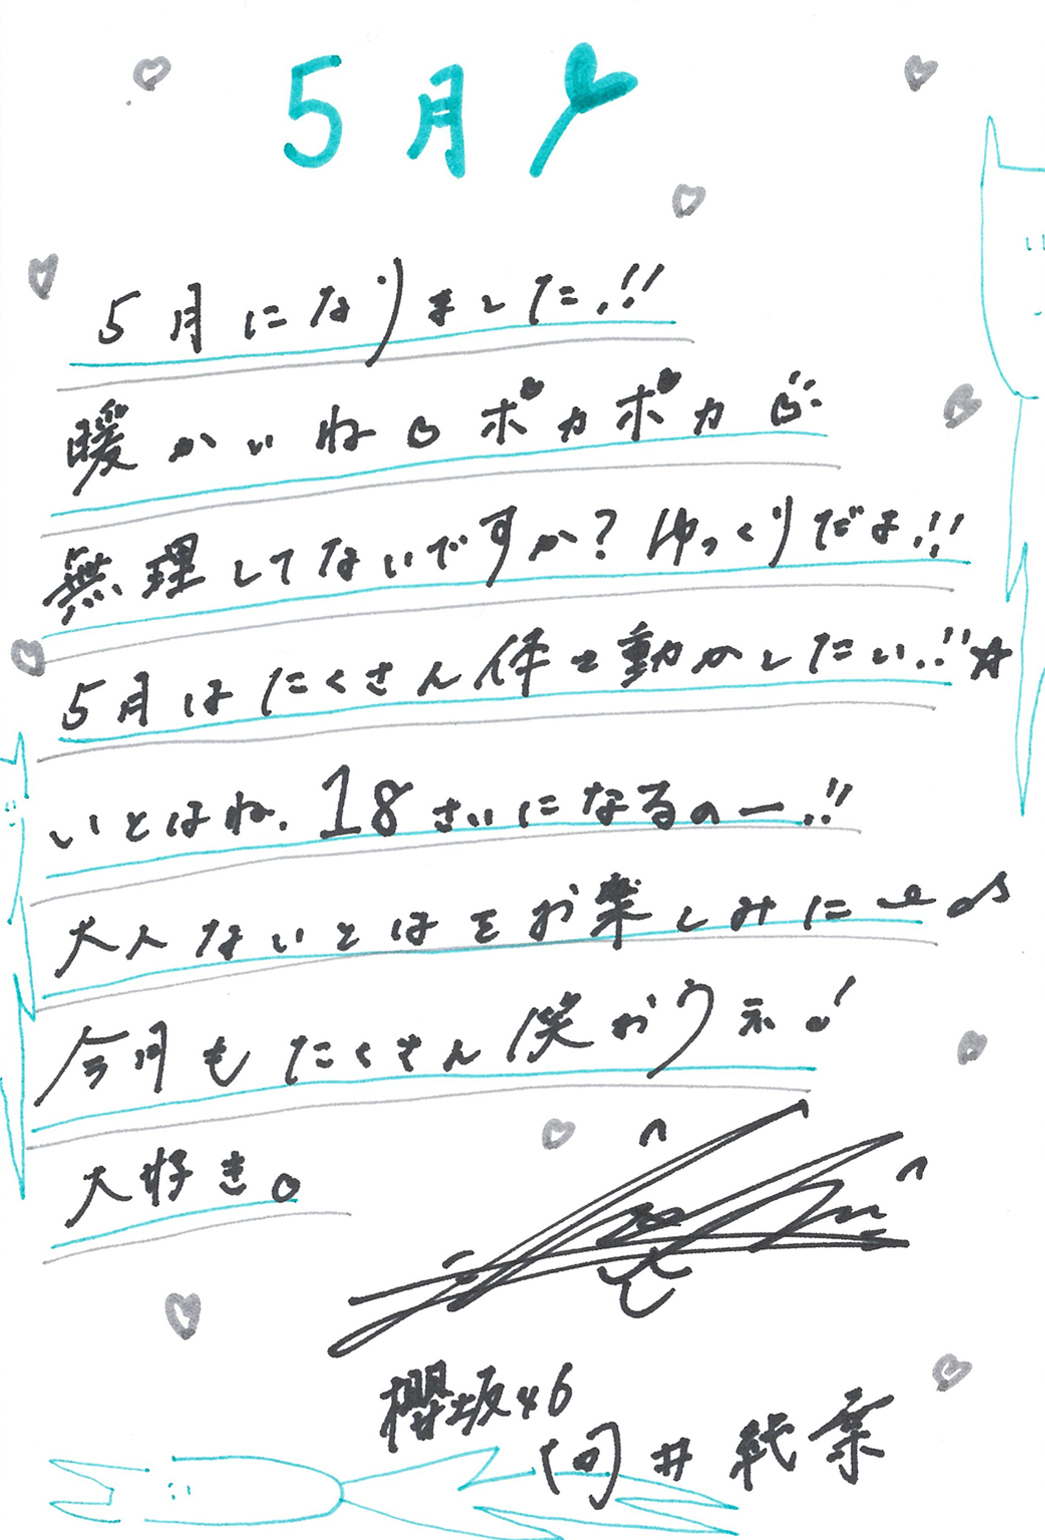 5月
5月になりました!!
暖かいねポカポカ
無理してないですか?ゆっくりだよ!!
5月はたくさん体を動かしたい!!☆
いとはね、18さいになるのー!!
大人ないとはをお楽しみに♪
今月もたくさん笑おうね!
大好き。
櫻坂46
向井純葉